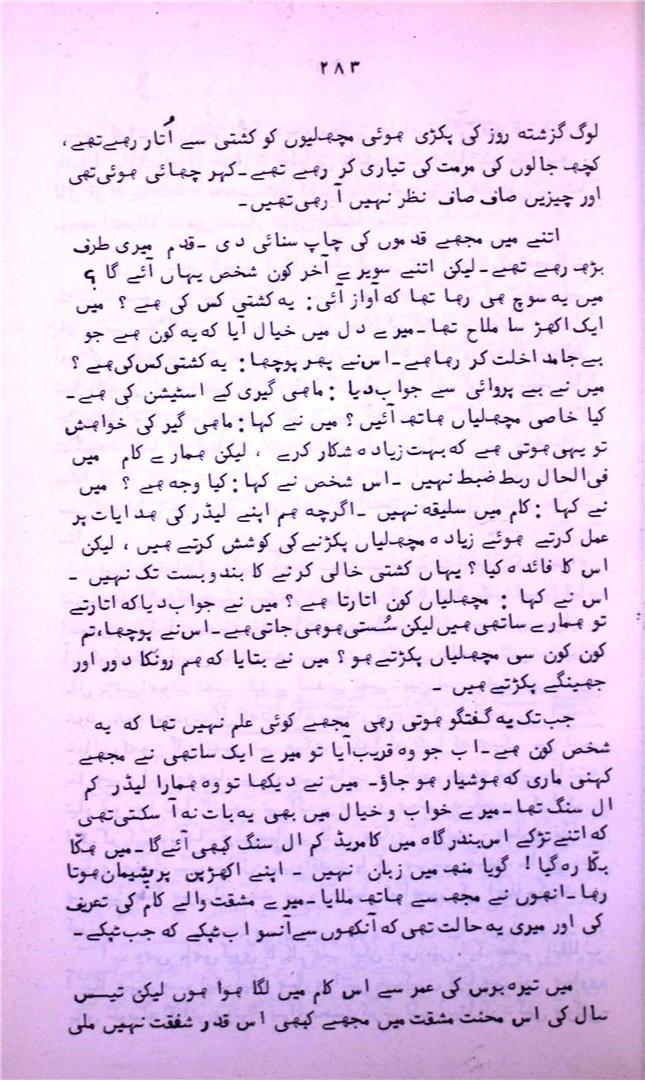 ۲۸۳
لوگ گزشتہ روز کی پکڑی ہوئی مچھلیوں کو کشتی سے اُتار رہے تھے،
کچھ جالوں کی مرمت کی تیاری کر رہے تھے۔ کہر چھائی ہوئی تھی
اور چیزیں صاف صاف نظر نہیں آ رہی تھیں۔
اتنے میں مجھے قدموں کی چاپ سنائی دی۔ قدم میری طرف
بڑھ رہے تھے۔ لیکن اتنے سویرے آخر کون شخص یہاں آئے گا ؟
میں یہ سوچ ہی رہا تھا کہ آواز آئی: یہ کشتی کس کی ہے ؟ میں
ایک اکھڑ سا ملاح تھا۔ میرے دل میں خیال آیا کہ یہ کون ہے جو
بے جا مداخلت کر رہا ہے۔ اس نے پھر پوچھا: یہ کشتی کس کی ہے ؟
میں نے بے پروائی سے جواب دیا : ماہی گیری کے اسٹیشن کی ہے۔
کیا خاصی مچھلیاں ہاتھ آئیں ؟ میں نے کہا: ماہی گیر کی خواہش
تو یہی ہوتی ہے کہ بہت زیادہ شکار کرے ، لیکن ہمارے کام میں
فی الحال ربط ضبط نہیں ۔ اس شخص نے کہا: کیا وجہ ہے ؟ میں
نے کہا : کام میں سلیقہ نہیں ۔ اگرچہ ہم اپنے لیڈر کی ہدایات پر
عمل کرتے ہوئے زیادہ مچھلیاں پکڑنے کی کوشش کرتے ہیں ، لیکن
اس کا فائدہ کیا ؟ یہاں کشتی خالی کرنے کا بندوبست تک نہیں ۔
اس نے کہا : مچھلیاں کون اتارتا ہے ؟ میں نے جواب دیا کہ اتارتے
تو ہمارے ساتھی ہیں لیکن سُستی ہو ہی جاتی ہے۔ اس نے پوچھا، تم
کون کون سی مچھلیاں پکڑتے ہو ؟ میں نے بتایا کہ ہم رونکا دور اور
جھینگے پکڑتے ہیں ۔
جب تک یہ گفتگو ہوتی رہی مجھے کوئی علم نہیں تھا کہ یہ
شخص کون ہے۔ اب جو وہ قریب آیا تو میرے ایک ساتھی نے مجھے
کہنی ماری کہ ہوشیار ہو جاؤ۔ میں نے دیکھا تو وہ ہمارا لیڈر کم
ال سنگ تھا ۔ میرے خواب و خیال میں بھی یہ بات نہ آ سکتی تھی
کہ اتنے تڑکے اس بندرگاہ میں کامریڈ کم ال سنگ کبھی آئے گا ۔ میں ہکا
بکّا رہ گیا ! گویا منھ میں زبان نہیں ۔ اپنے اکھڑپن پر پشیمان ہوتا
رہا ۔ انھوں نے مجھ سے ہاتھ ملایا۔ میرے مشقت والے کام کی تعریف
کی اور میری یہ حالت تھی کہ آنکھوں سے آنسو اب ٹپکے کہ جب ٹپکے ۔
میں تیرہ برس کی عمر سے اس کام میں لگا ہوا ہوں لیکن تیسس
سال کی اس محنت مشقت میں مجھے کبھی اس قدر شفقت نہیں ملی